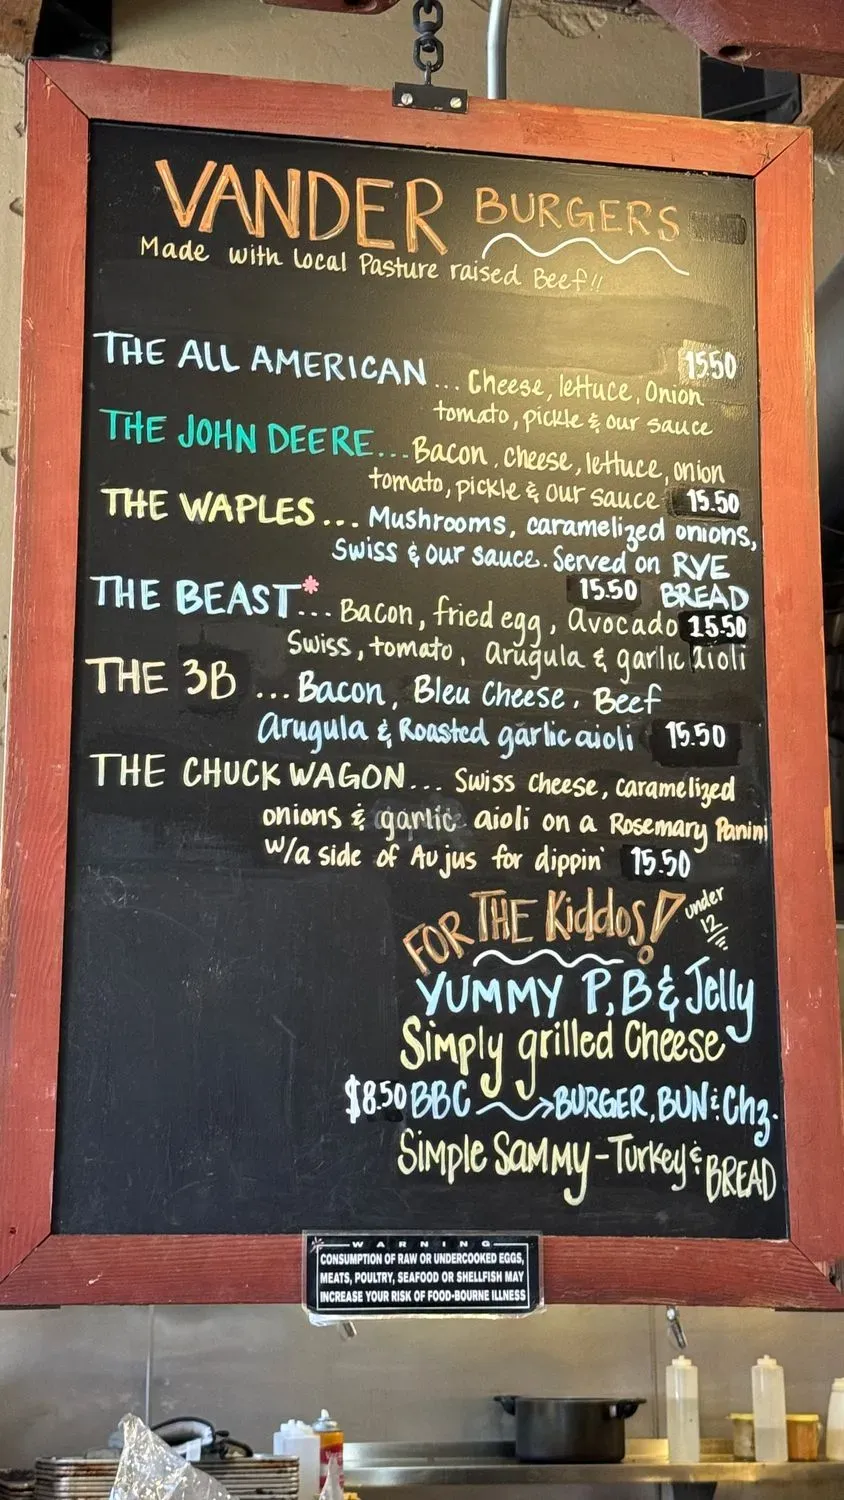 VANDER BURGERS
Made with Local Pasture raised Beef!!
THE ALL AMERICAN ... Cheese, lettuce, Onion 15.50
tomato, pickle & our sauce
THE JOHN DEERE... Bacon, cheese, lettuce, onion
tomato, pickle & our sauce 15.50
THE WAPLES ... Mushrooms, caramelized onions,
Swiss & our sauce. Served on RYE
15.50 BREAD
THE BEAST*... Bacon, fried egg, Avocado 15.50
Swiss, tomato, arugula & garlic aioli
THE 3B ... Bacon, Bleu Cheese, Beef
Arugula & Roasted garlic aioli 15.50
THE CHUCK WAGON... Swiss Cheese, caramelized
onions & garlic aioli on a Rosemary Panini
w/a side of Au jus for dippin' 15.50
FOR THE Kiddos! under
12
YUMMY P,B & Jelly
Simply grilled Cheese
$8.50 BBC → BURGER, BUN & Chz.
Simple Sammy - Turkey & BREAD
* WARNING
CONSUMPTION OF RAW OR UNDERCOOKED EGGS,
MEATS, POULTRY, SEAFOOD OR SHELLFISH MAY
INCREASE YOUR RISK OF FOOD-BOURNE ILLNESS